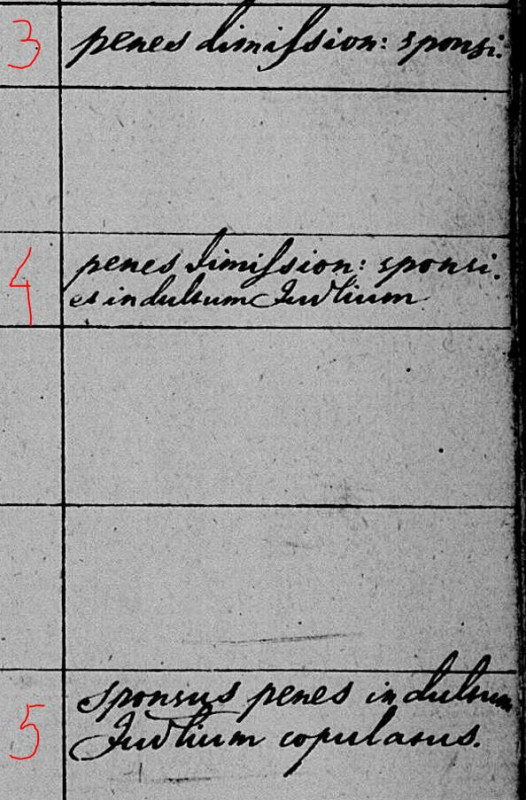 3 penes dimission: sponsi.
4 penes dimission: sponsi.
et indultum Judlium
5 sponsus penes indultum
Judlium copulatus.